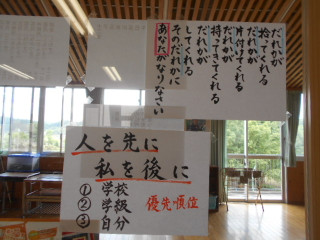 だれかが
拾ってくれる
だれかが
片付けてくれる
だれかが
持ってきてくれる
だれかが
してくれる
そのだれかに
あなたがなりなさい
人を先に
私を後に
①学校
②学級
③自分
優先順位